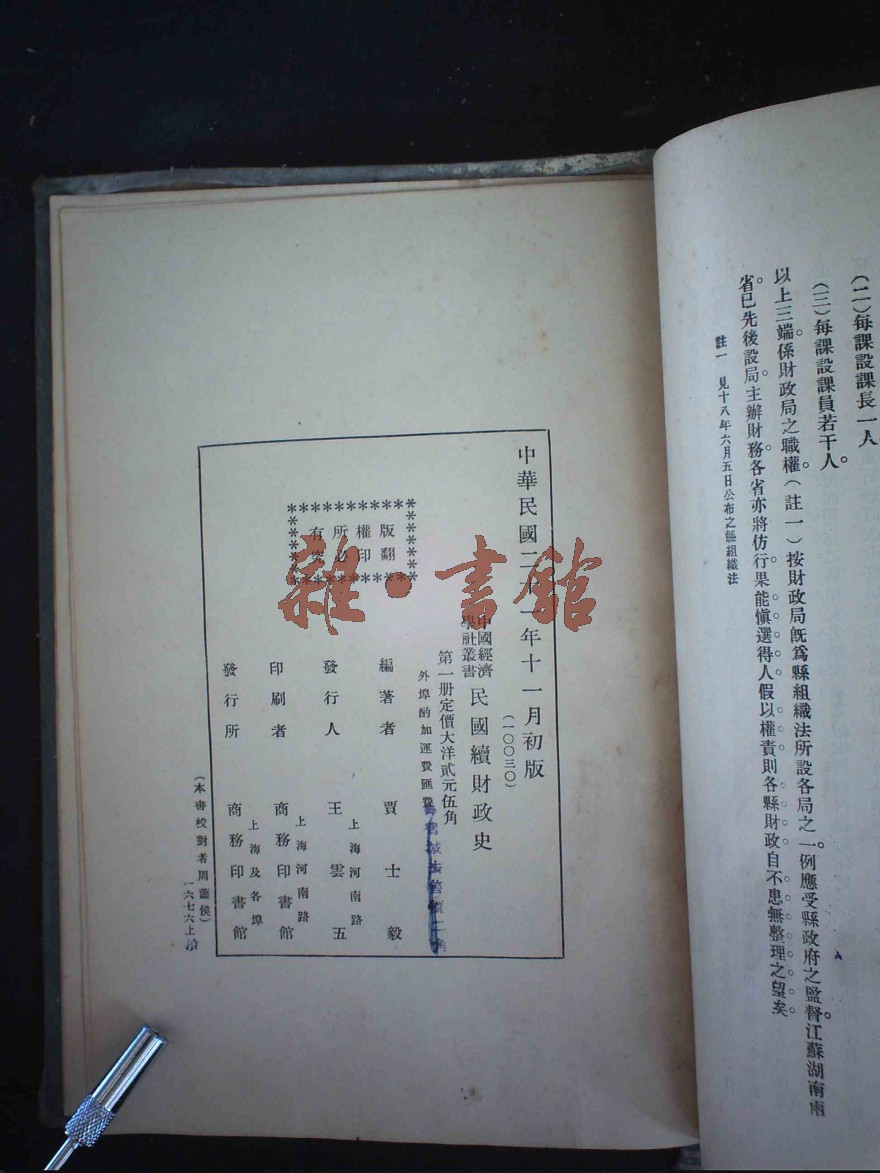 (二)每課設課長一人
(三)每課設課員若干人。
以上三端。係財政局之職權。(註一)按財政局既爲縣組織法所設各局之一。例應受縣政府之監督。江蘇湖南兩
省已先後設局。主辦財務。各省亦將仿行。果能愼選得人。假以權責。則各縣財政。自不患無整理之望矣。
註一 見十八年六月五日公布之縣組織法
中華民國二十一年十一月初版
(一〇〇三〇)
中國經濟
學社叢書
民國續財政史
第一册定價大洋貳元伍角
外埠酌加運費匯費
版權所有
翻印必究
編著者 賈士毅
發行人 王雲五
上海河南路
印刷者 商務印書館
上海河南路
發行所 商務印書館
上海及各埠
(本書校對者周蘧侯)
一六七六上
雜·書館